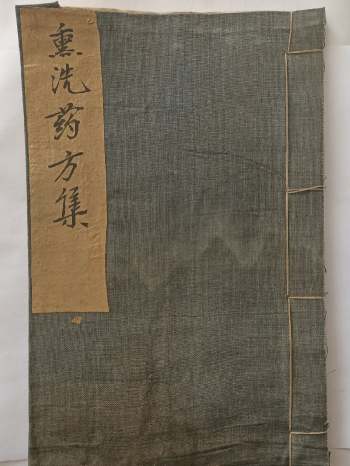 熏洗药方集